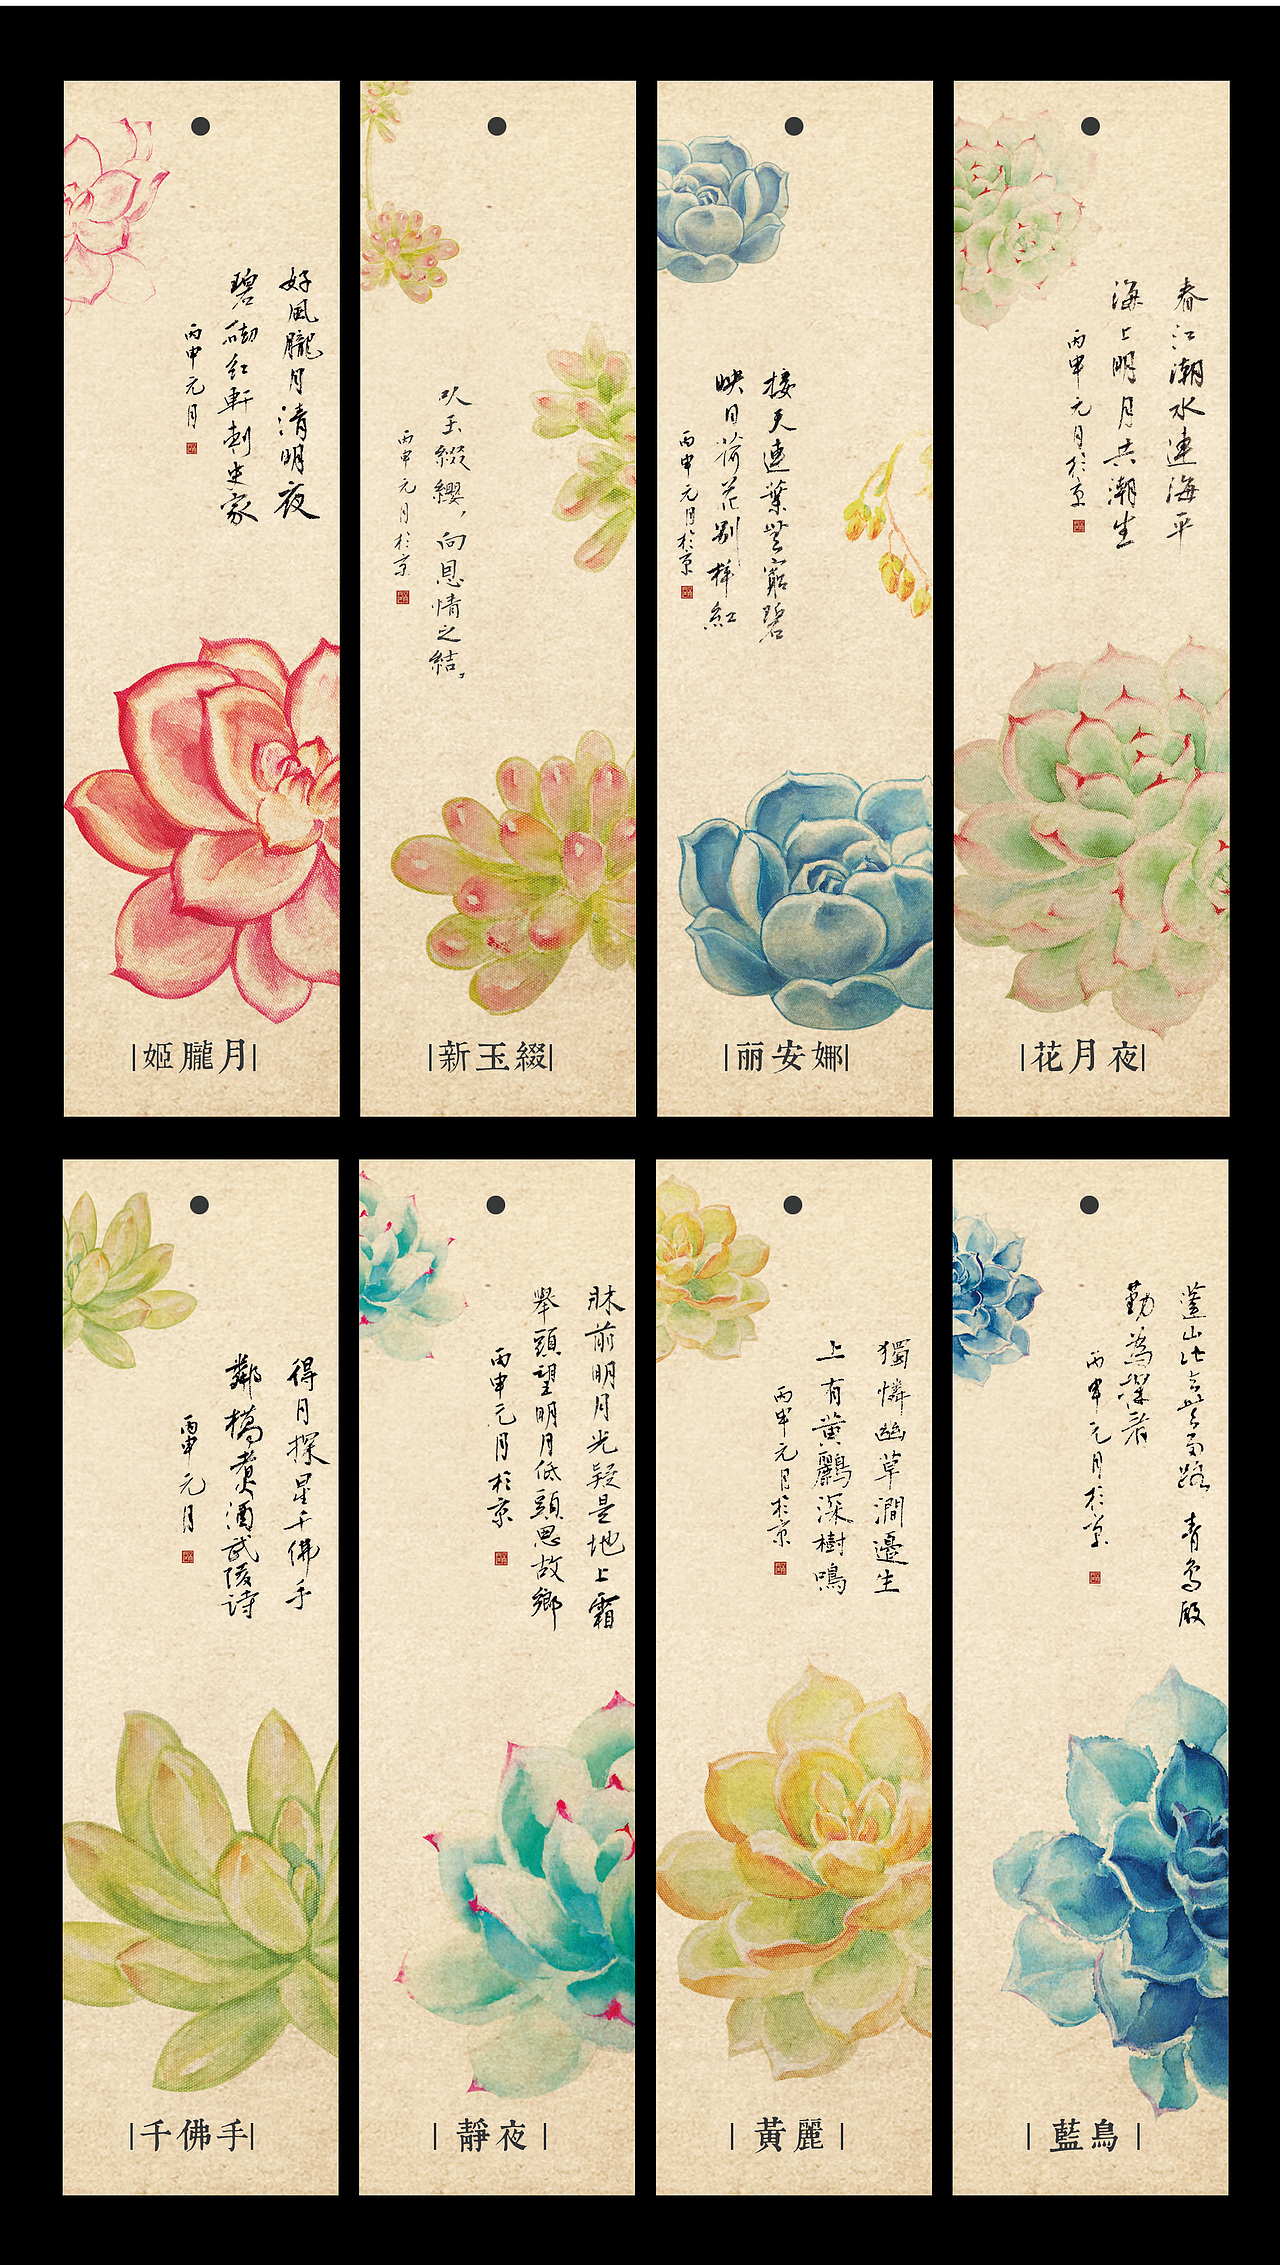 好風朧月清明夜
碧砌紅軒刺史家
丙申元月
姬朧月
以玉綴纓，向恩情之結。
丙申元月於京
新玉綴
接天連葉無窮碧
映日荷花別样紅
丙申元月於京
丽安娜
春江潮水連海平
海上明月共潮生
丙申元月於京
花月夜
得月探星千佛手
鄰橋煮酒武陵詩
丙申元月
千佛手
牀前明月光疑是地上霜
舉頭望明月低頭思故鄉
丙申元月於京
靜夜
獨憐幽草澗邊生
上有黃鸝深樹鳴
丙申元月於京
黃麗
蓬山此去無多路 青鳥殷
勤為探看
丙申元月於京
藍鳥